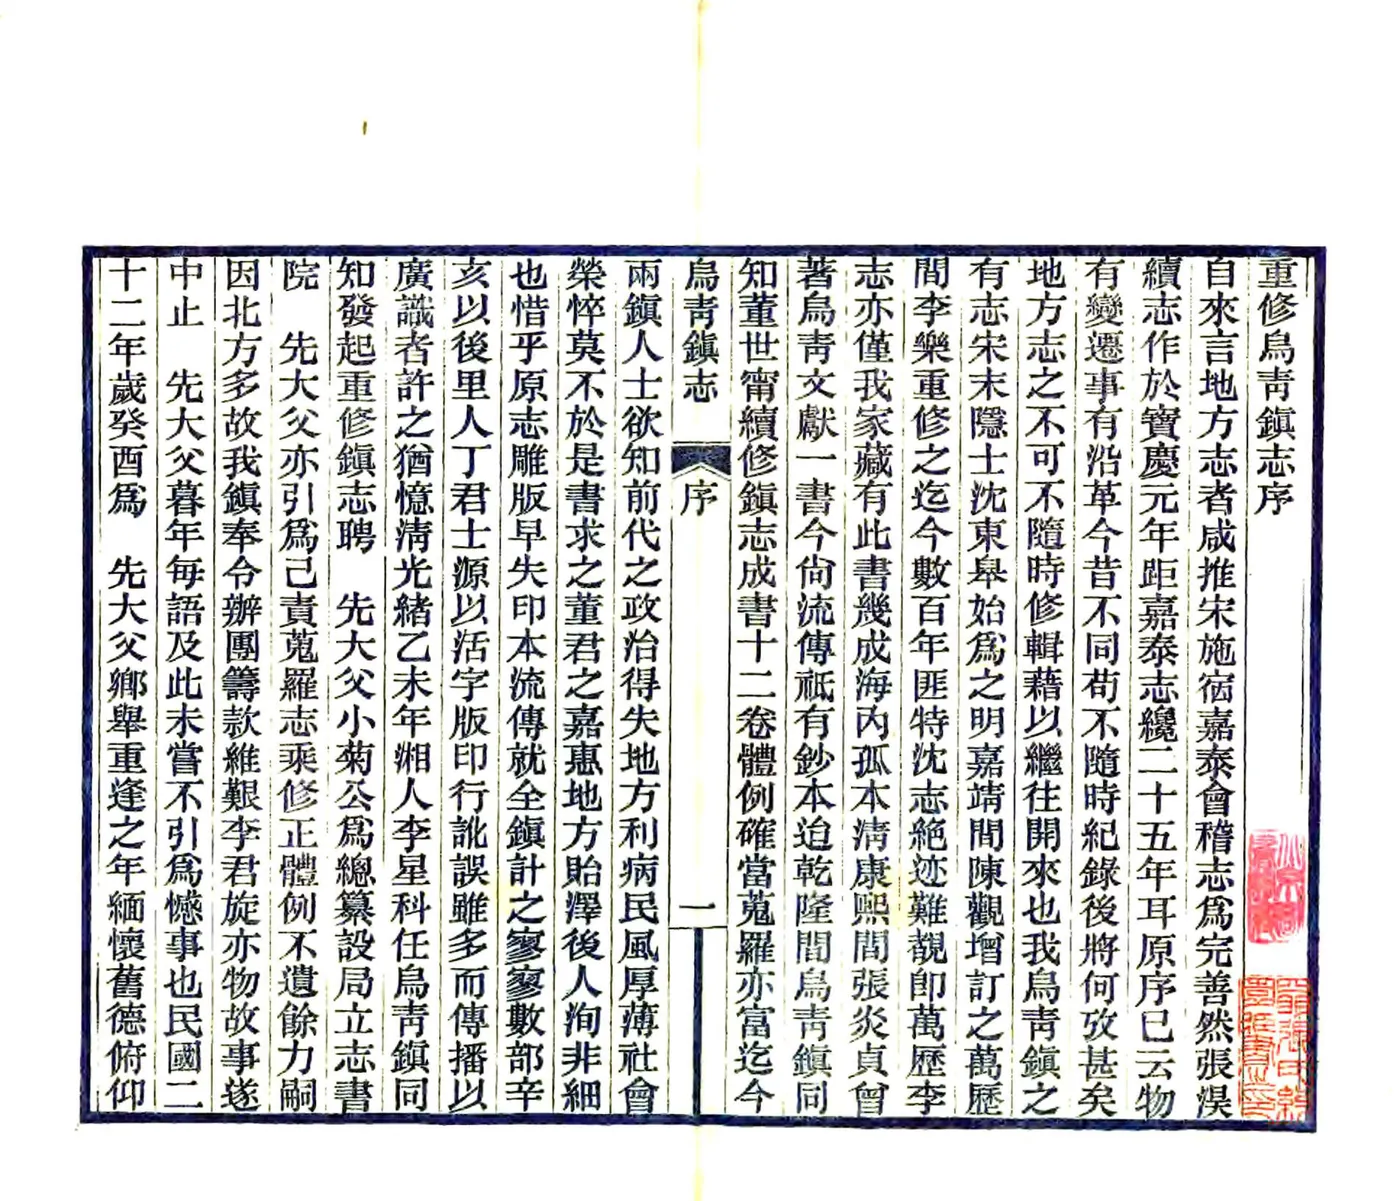 重修烏青鎮志序
自來言地方志者咸推宋施宿嘉泰會稽志爲完善然張淏
續志作於寶慶元年距嘉泰志纔二十五年耳原序已云物
有變遷事有沿革今昔不同苟不隨時紀錄後將何攷甚矣
地方志之不可不隨時修輯藉以繼往開來也我烏青鎮之
有志宋末隱士沈東臯始爲之明嘉靖間陳觀增訂之萬歷
間李樂重修之迄今數百年匪特沈志絶迹難覩卽萬歷李
志亦僅我家藏有此書幾成海內孤本淸康熙間張炎貞曾
著烏青文獻一書今尙流傳祗有鈔本迨乾隆間烏青鎮同
知董世甯續修鎮志成書十二卷體例確當蒐羅亦富迄今
烏青鎮志
序
一
兩鎮人士欲知前代之政治得失地方利病民風厚薄社會
榮悴莫不於是書求之董君之嘉惠地方貽澤後人洵非細
也惜乎原志雕版早失印本流傳就全鎮計之寥寥數部辛
亥以後里人丁君士源以活字版印行訛誤雖多而傳播以
廣識者許之猶憶淸光緒乙未年湘人李星科任烏青鎮同
知發起重修鎮志聘　先大父小菊公爲總纂設局立志書
院　先大父亦引爲己責蒐羅志乘修正體例不遺餘力嗣
因北方多故我鎮奉令辦團籌款維艱李君旋亦物故事遂
中止　先大父暮年每語及此未嘗不引爲憾事也民國二
十二年歲癸酉爲　先大父鄉舉重逢之年緬懷舊德俯仰